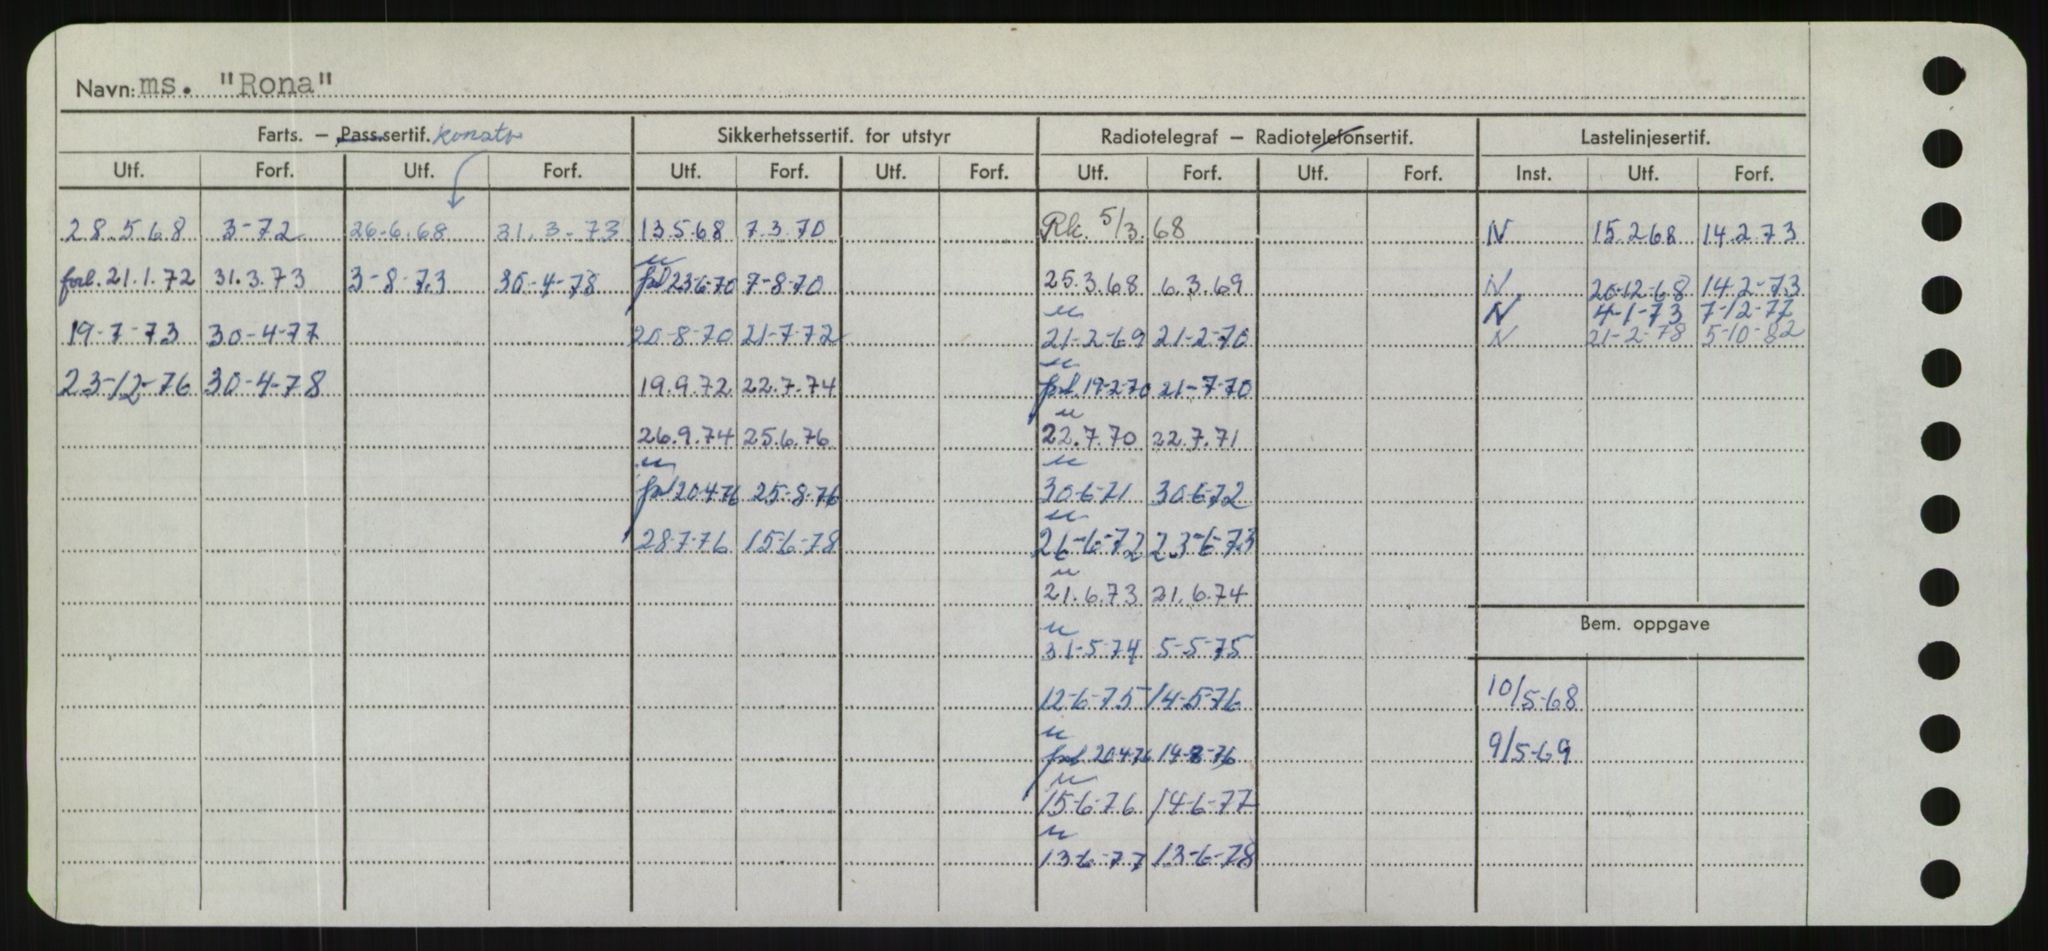 Navn: ms. "Rona"
Farts. – Pass.sertif. konstr Sikkerhetssertif. for utstyr Radiotelegraf – Radiotelefonsertif. Lastelinjesertif.
Utf. Forf. Utf. Forf. Utf. Forf. Utf. Forf. Utf. Forf. Utf. Forf. Inst. Utf. Forf.
28.5.68 3-72 26-6.68 31.3-73 13.5.68 7.3.70 Rk. 5/3.68 N 15.2.68 14.2.73
forl. 21.1.72 31.3.73 3-8-73 30-4-78 fol 23-6-70 7-8-70 25.3.68 6.3.69 N 20-12-68 14.2-73
N 4-1-73 7-12-77
19-7-73 30-4-77 20-8-70 21-7-72 21-2-69 21-2-70 N 21-2-78 5-10-82
23-12-76 30-4-78 19.9.72 22.7.74 fol 19-2-70 21-7-70
26.9.74 25.6.76 22.7.70 22.7.71
fol 20476 25-8-76 30-6-71 30-6-72
28-7-76 15-6-78 26-6-72 23-6-73
21.6.73 21.6.74
Bem. oppgave
31-5-74 5-5-75
12-6-75 14-5-76 10/5-68
fol 20476 14-8-76 9/5-69
15-6-76 14-6-77
13-6-77 13-6-78